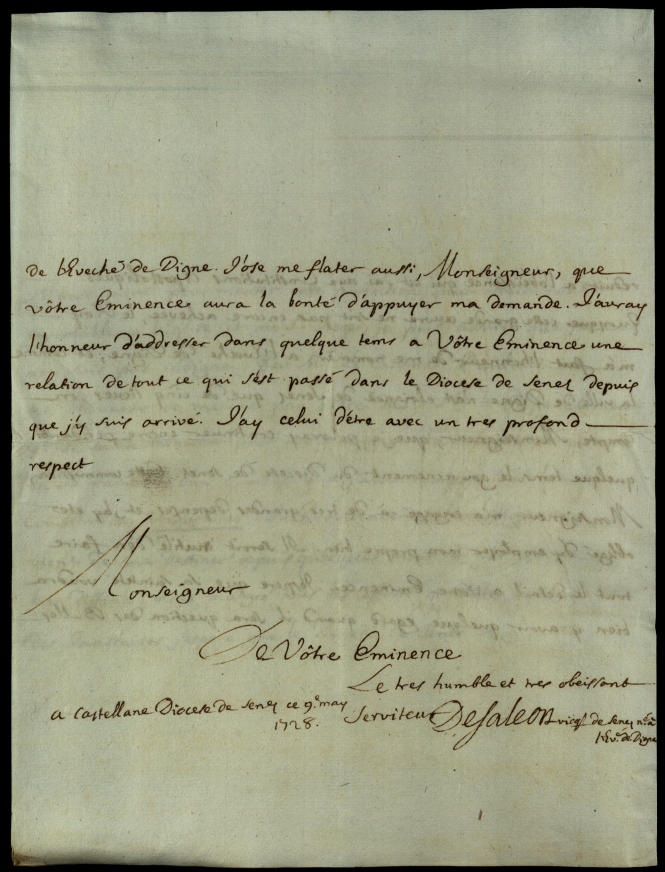 de l'Eveché de Digne. J'ose me flater aussi, Monseigneur, que
vôtre Eminence aura la bonté d'appuyer ma demande. J'auray
l'honneur d'addresser dans quelque tems a Vôtre Eminence une
relation de tout ce qui s'est passé dans le Diocese de Senez depuis
que j'y suis arrivé. J'ay celui d'être avec un tres profond
respect
Monseigneur
De Vôtre Eminence
Le tres humble et tres obeissant
Serviteur DeSaleon vicgl de Senez né à
l'Ev. de Digne
a Castellane Diocese de Senez ce 9e may
1728.